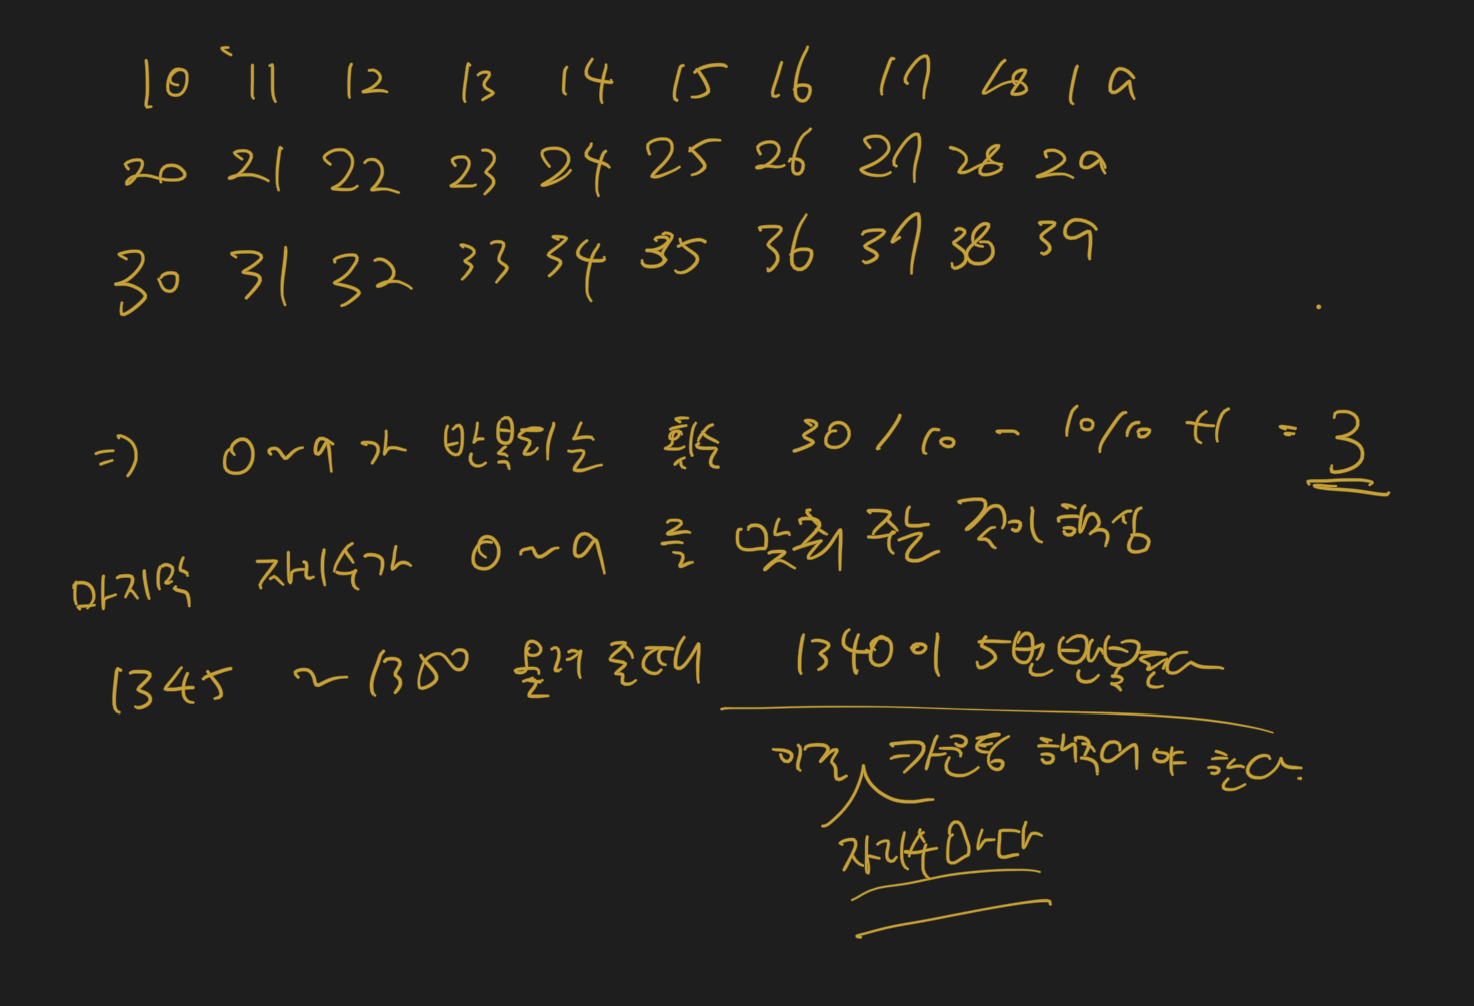 10 11 12 13 14 15 16 17 18 19
20 21 22 23 24 25 26 27 28 29
30 31 32 33 34 35 36 37 38 39
=> 0~9가 반복되는 횟수 30/10 - 10/10 +1 = 3
마지막 자리수가 0~9 를 맞춰 주는 것이 핵심
1345 ~1350 올려 줄때 1340이 5번 반복된다
이걸 카운팅 해주어야 한다.
자리수마다